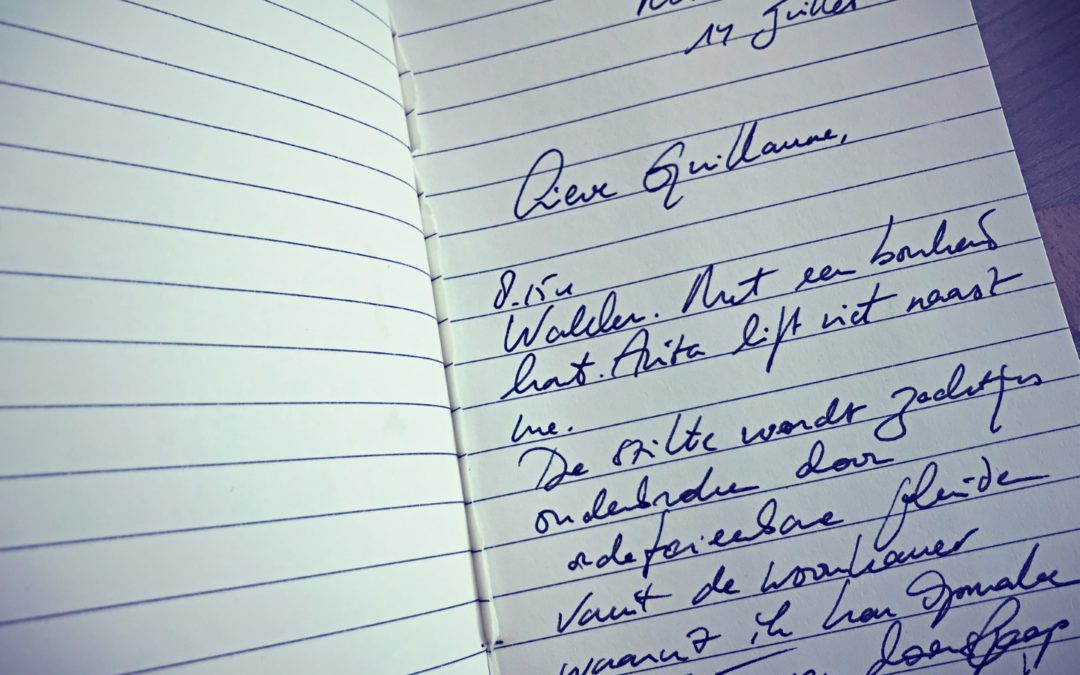 14 Juillet
Lieve Guillaume,
8.15u
Wakker. Met een bonkend
hart. Anita ligt niet naast
me.
De stilte wordt zachtjes
onderbroken door
ondefinieerbare geluiden
vanuit de woonkamer
waaruit ik kan opmaken